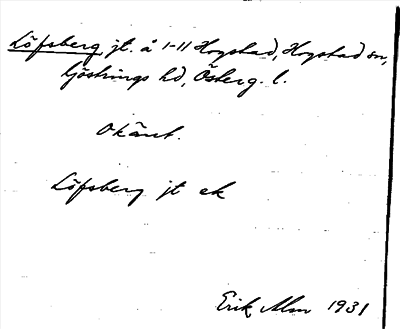 Löfsberg jt. å 1-11 Hogstad, Hogstad sn,
Göstrings hd, Österg. l.
Okänt.
Löfsberg jt ek
Erik Alm 1931